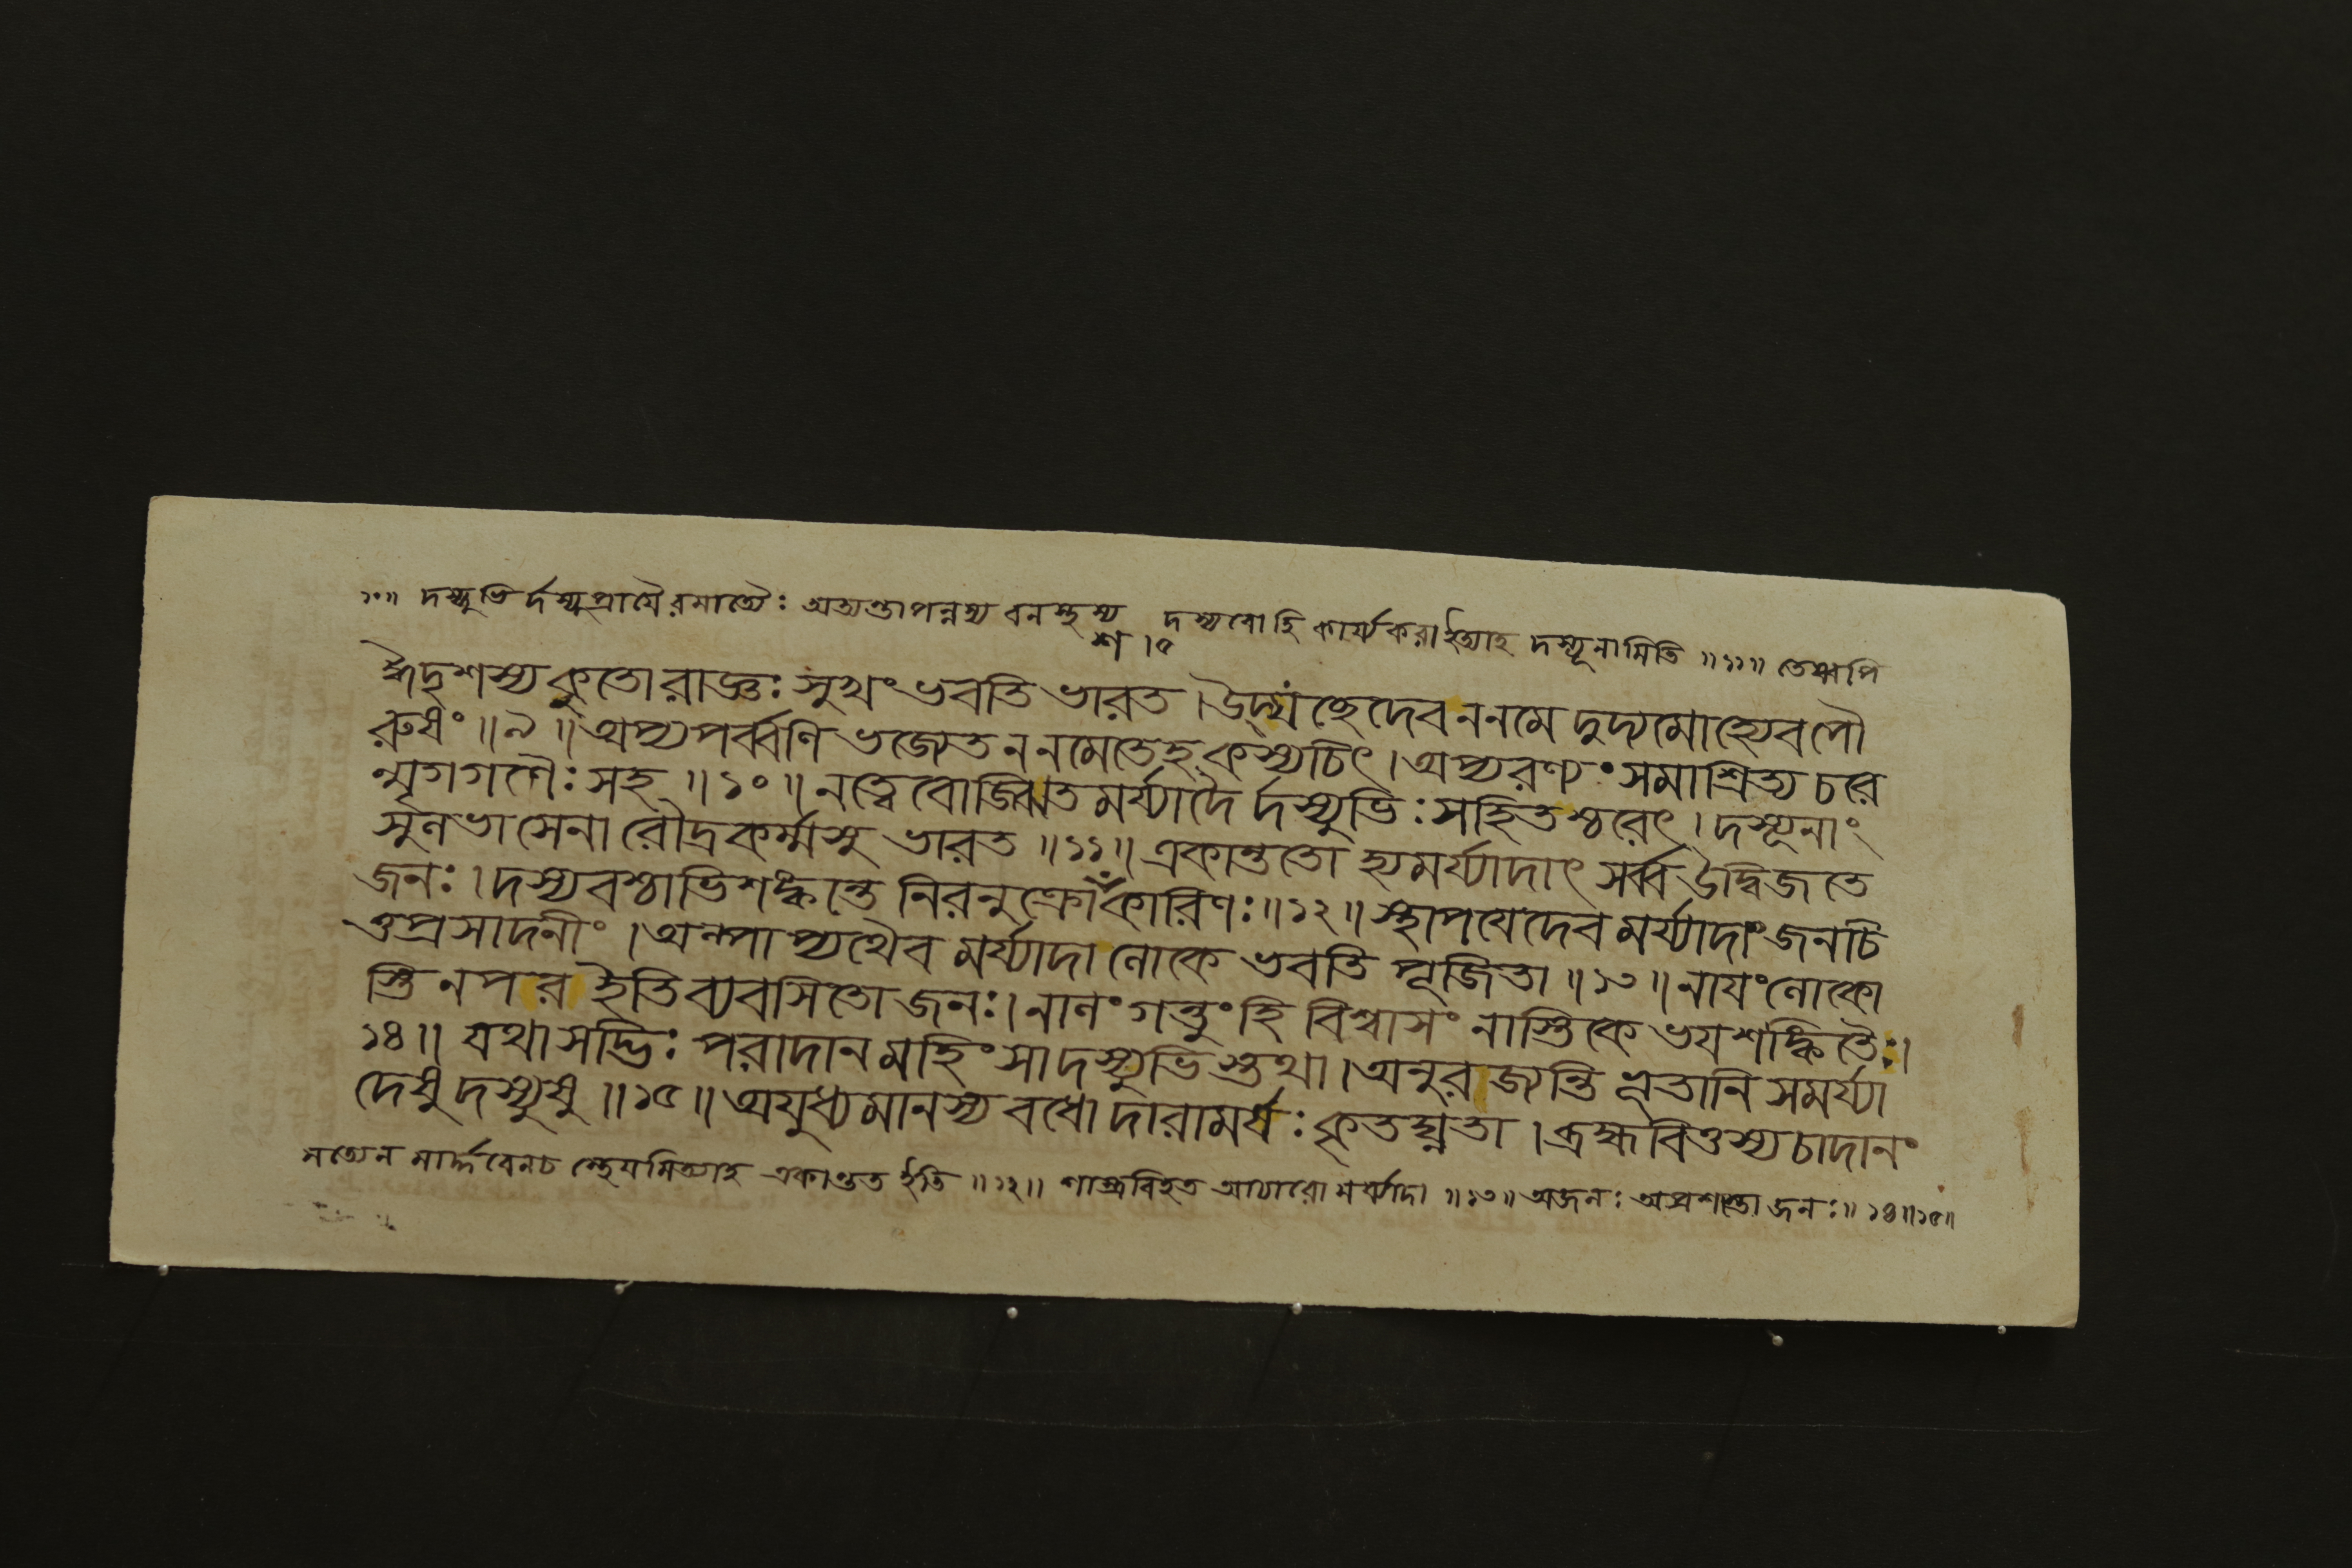 ১০॥ দস্যুভি র্দস্যুপ্রায়ৈরমাত্যৈঃ অত্যন্তাপন্নস্য বনস্থস্য দস্যবোহি কার্য্যকরাইত্যাহ দস্যূনামিতি ॥১১॥ তেষ্বপি
শ ।৫
ঈদৃশস্য কুতোরাজ্ঞঃ সুখং ভবতি ভারত । উদ্যচ্ছেদেব ননমে দুদ্যমোহ্যেবপৌ
রুষং ॥৯॥ অপ্যপর্ব্বণি ভজ্যেত ননমেতেহ কস্যচিৎ । অপ্যরণ্যং সমাশ্রিত্য চরে
ন্মৃগগণৈঃ সহ ॥১০॥ নত্বেবোজ্ঝিত মর্য্যাদৈ র্দস্যুভিঃ সহিতশ্চরেৎ । দস্যূনাং
সুনভাসেনা রৌদ্রকর্ম্মসু ভারত ॥১১॥ একান্ততো হ্যমর্য্যাদাৎ সর্ব্বউদ্বিজতে
জনঃ । দস্যবশ্চাভিশঙ্কন্তে নিরনুক্রোকারিণঃ ॥১২॥ স্থাপযেদেব মর্য্যাদাং জনচি
ত্তপ্রসাদনীং । অল্পাপ্যথৈব মর্য্যাদা লোকে ভবতি পূজিতা ॥১৩॥ নাযং লোকো
স্তি নপর ইতিব্যবসিতো জনঃ । নালং গন্তুং হি বিশ্বাসং নাস্তিকে ভযশঙ্কিতৈঃ ।
১৪॥ যথাসদ্ভিঃ পরাদান মহিংসাদস্যুভিস্তথা । অনুরজ্যন্তি ভূতানি সমর্য্যা
দেষু দস্যুষু ॥১৫॥ অযুধ্যমানস্য বধো দারামর্ষঃ কৃতঘ্নতা । ব্রহ্মবিত্তস্য চাদানং
সত্যেন মার্দ্দবেনচ স্থেযমিত্যাহ একান্তত ইতি ॥১২॥ শাস্ত্রবিহৃত আচারো মর্য্যাদা ॥১৩॥ অজনঃ অপ্রশস্তো জনঃ ॥ ১৪॥১৫॥